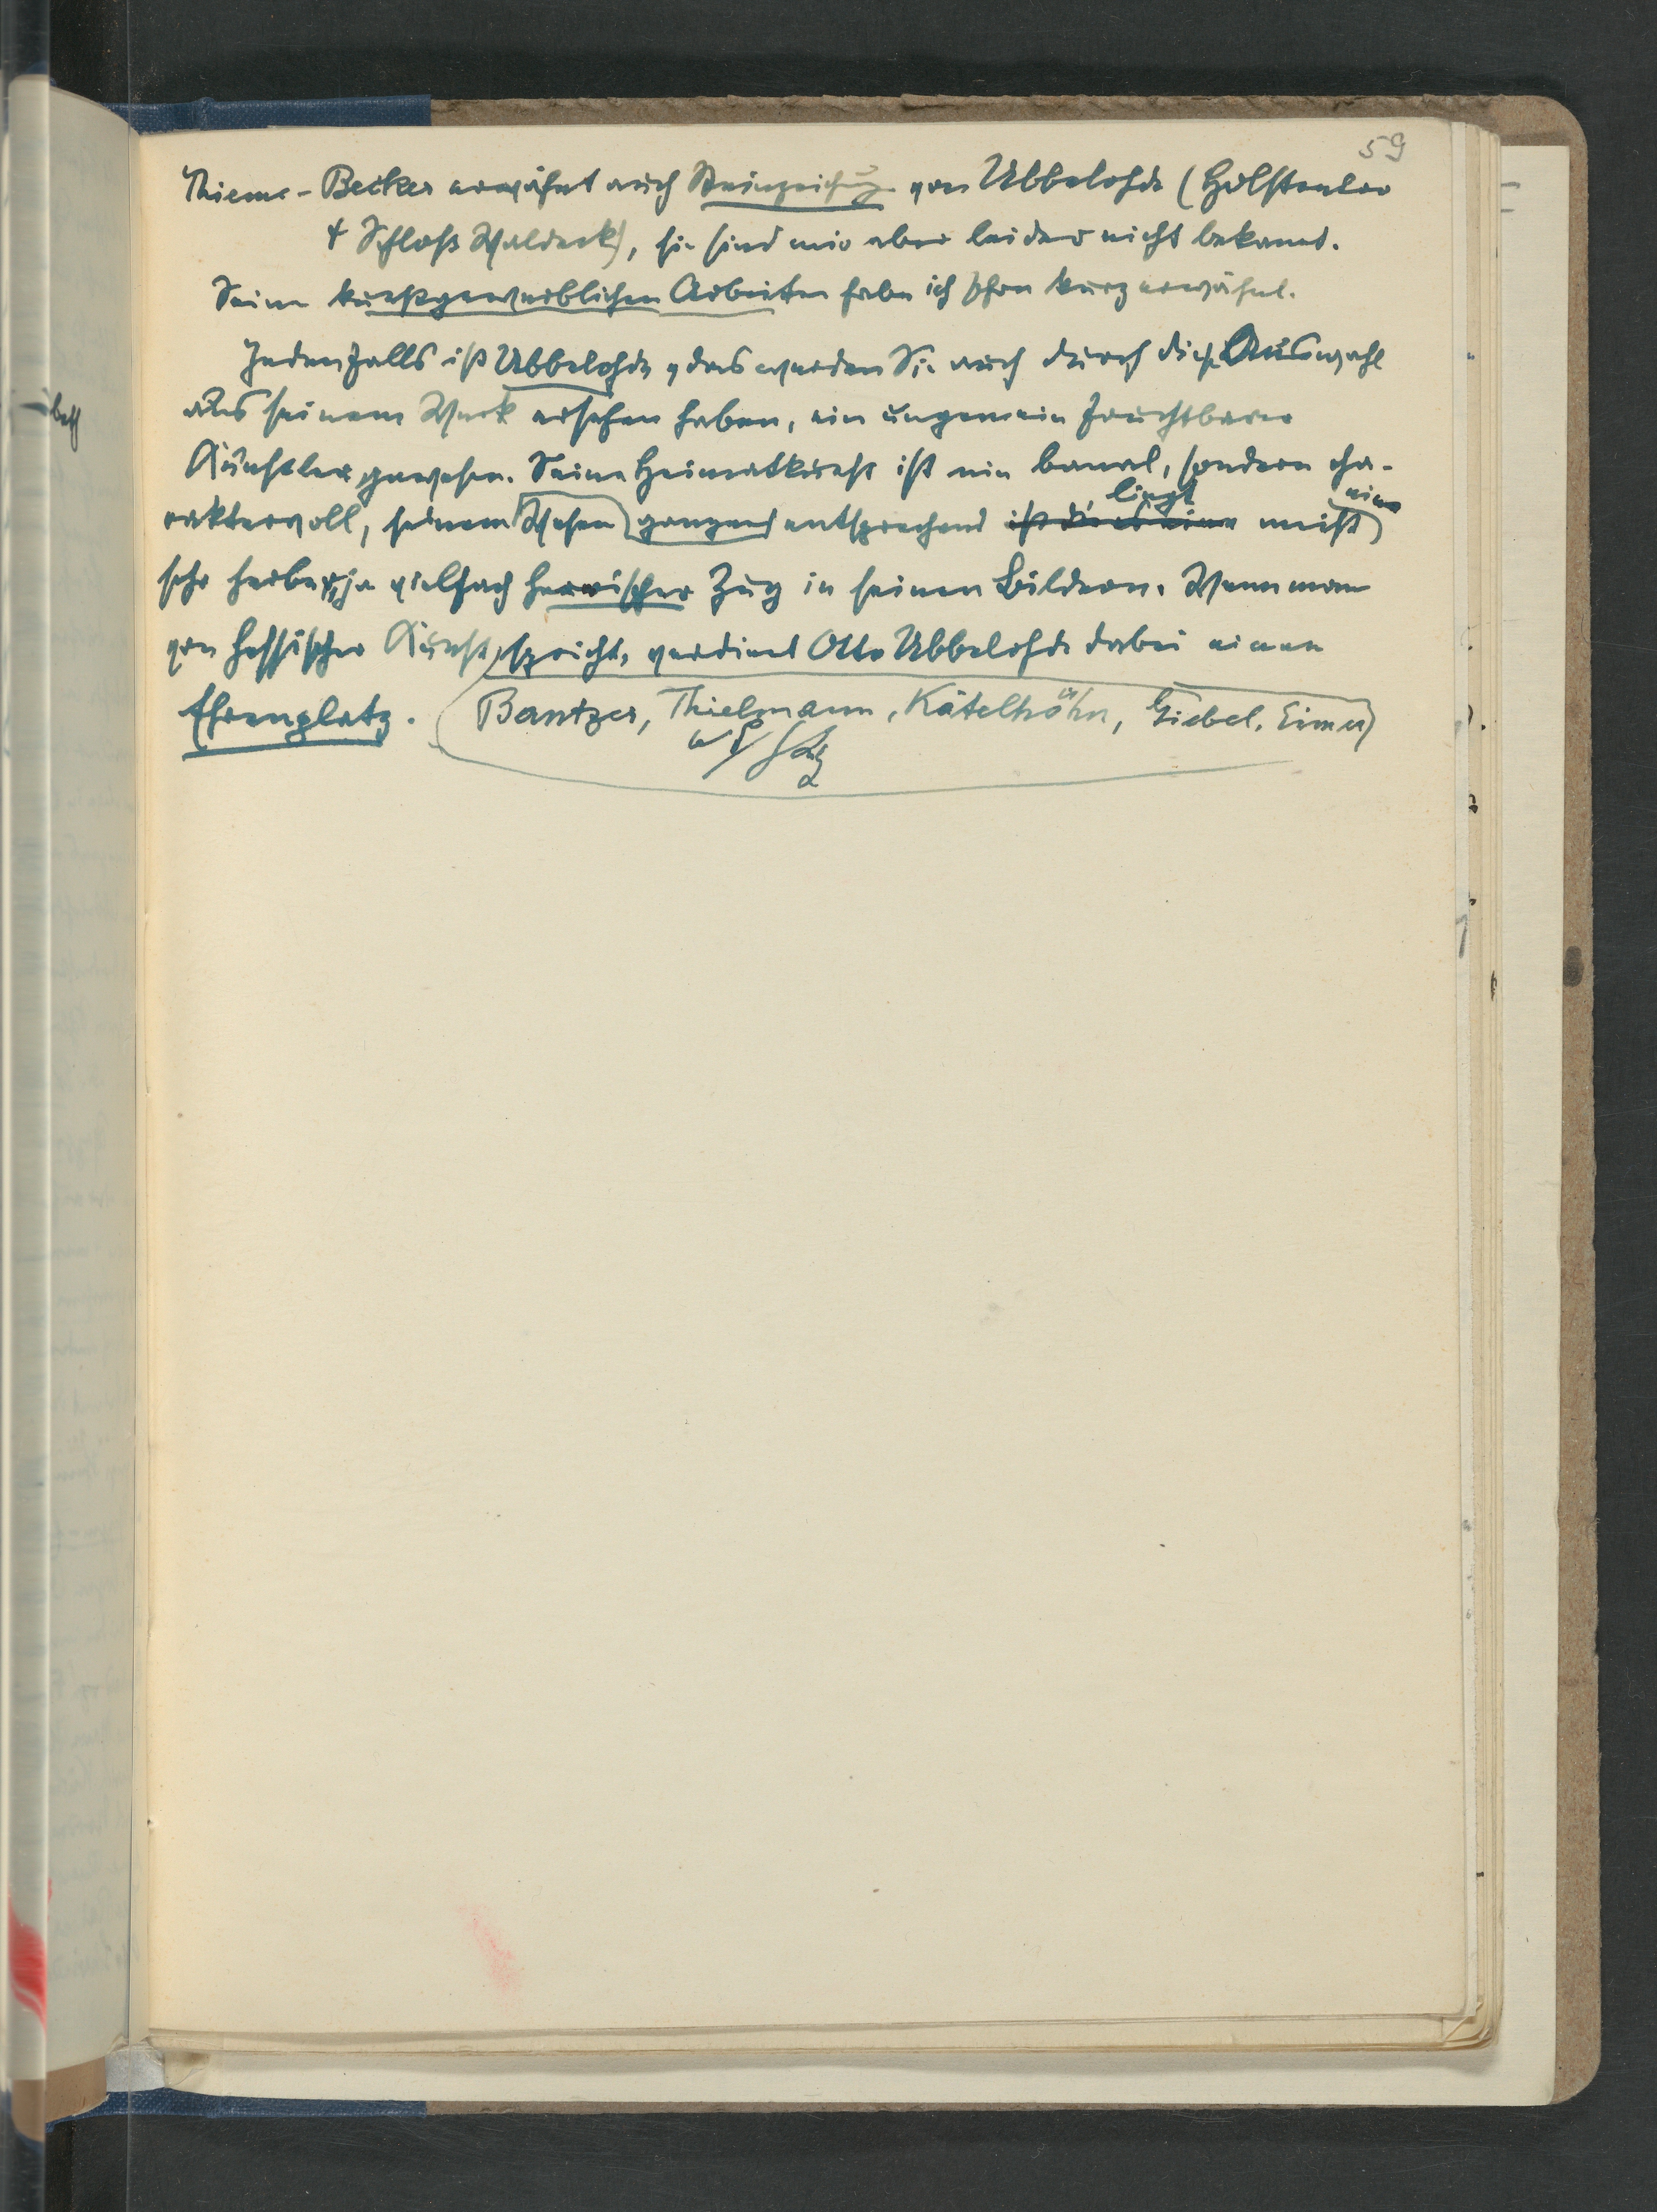 59
Thieme-Becker erwähnt auch Steinzeichng von Ubbelohde (Holstentor
+ Schloß Waldeck), sie sind mir aber leider nicht bekannt.
Seine kunstgewerblichen Arbeiten habe ich schon kurz erwähnt.
Jedenfalls ist Ubbelohde, das werden Sie auch durch diese Auswahl
aus seinem Werk ersehen haben, ein ungemein fruchtbarer
Künstler gewesen. Seine Heimatkunst ist nie banal, sondern cha-
liegt ein
raktervoll, seinem Wesen ganzen entsprechend ist dies ein meist
sehr herber, ja vielfach heroischer Zug in seinen Bildern. Wenn man
von hessischer Kunst spricht, verdient Otto Ubbelohde dabei einen
Ehrenplatz. (Bantzer, Thielmann, Kätelhöhn, Giebel, Eimer)